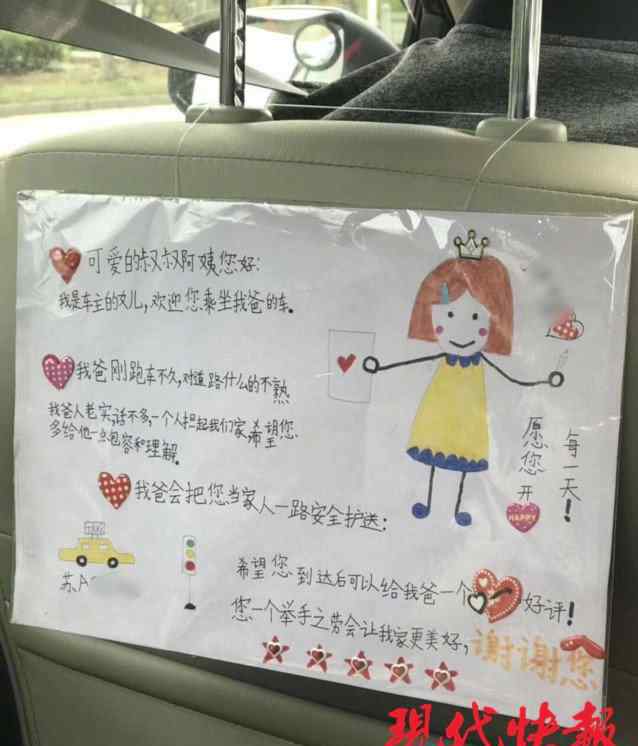 可爱的叔叔阿姨您好:
我是车主的女儿,欢迎您乘坐我爸的车。
我爸刚跑车不久,对道路什么的不熟
我爸人老实,话不多,一个人担起我们家希望您
多给他一点包容和理解。
我爸会把您当家人一路安全护送:
愿您开
HAPPY
每一天!
苏A
希望您到达后可以给我爸一个好评!
您一个举手之劳会让我家更美好,谢谢您
现代快报